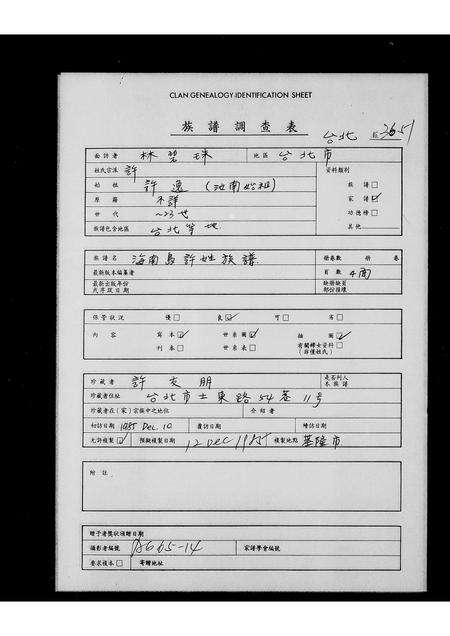 CLAN GENEALOGY IDENTIFICATION SHEET
族譜調查表
台北 3651
面訪者 林碧珠 地區 台北市
姓氏宗派 許 資料類別
始祖 許逸 (海南始祖) 族譜□
原籍 不詳 家譜☑
世代 ~23世 功德榜□
族譜包含地區 台北等地 其他
族譜名 海南島許姓族譜 冊卷數 冊 卷
最新版本編纂者 頁數 4面
最新出版年份 缺冊缺頁
或序跋日期 部份種壞
保管狀況 優□ 良☑ 可□ 劣□
內容 寫本☑ 世系圖☑ 插圖☑
刊本□ 世系表□ 有關婦女資料□
(非僅姓氏)
珍藏者 許友朋 是否列入
本族譜
珍藏者住址 台北市士東路54巷11号
珍藏者在(家)宗族中之地位 介紹者
初訪日期 1985 Dec. 10 覆訪日期 續訪日期
允許複製☑ 預擬複製日期 12 Dec 1985 複製地點 基隆市
附註
贈予者獎狀須贈日期
攝影者編號 家譜學會編號
要求複本□ 寄贈地址